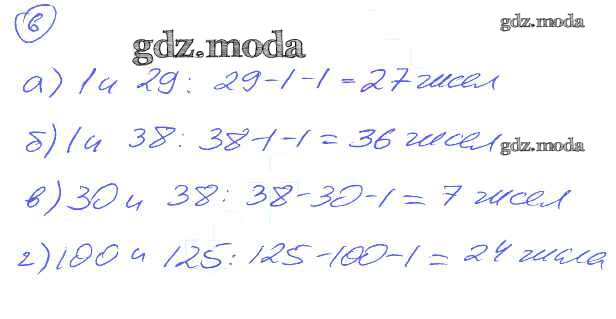 6 gdz.moda
gdz.moda
а) 1 и 29: 29-1-1=27 чисел
б) 1 и 38: 38-1-1=36 чисел gdz.moda
в) 30 и 38: 38-30-1=7 чисел
г) 100 и 125: 125-100-1=24 числа